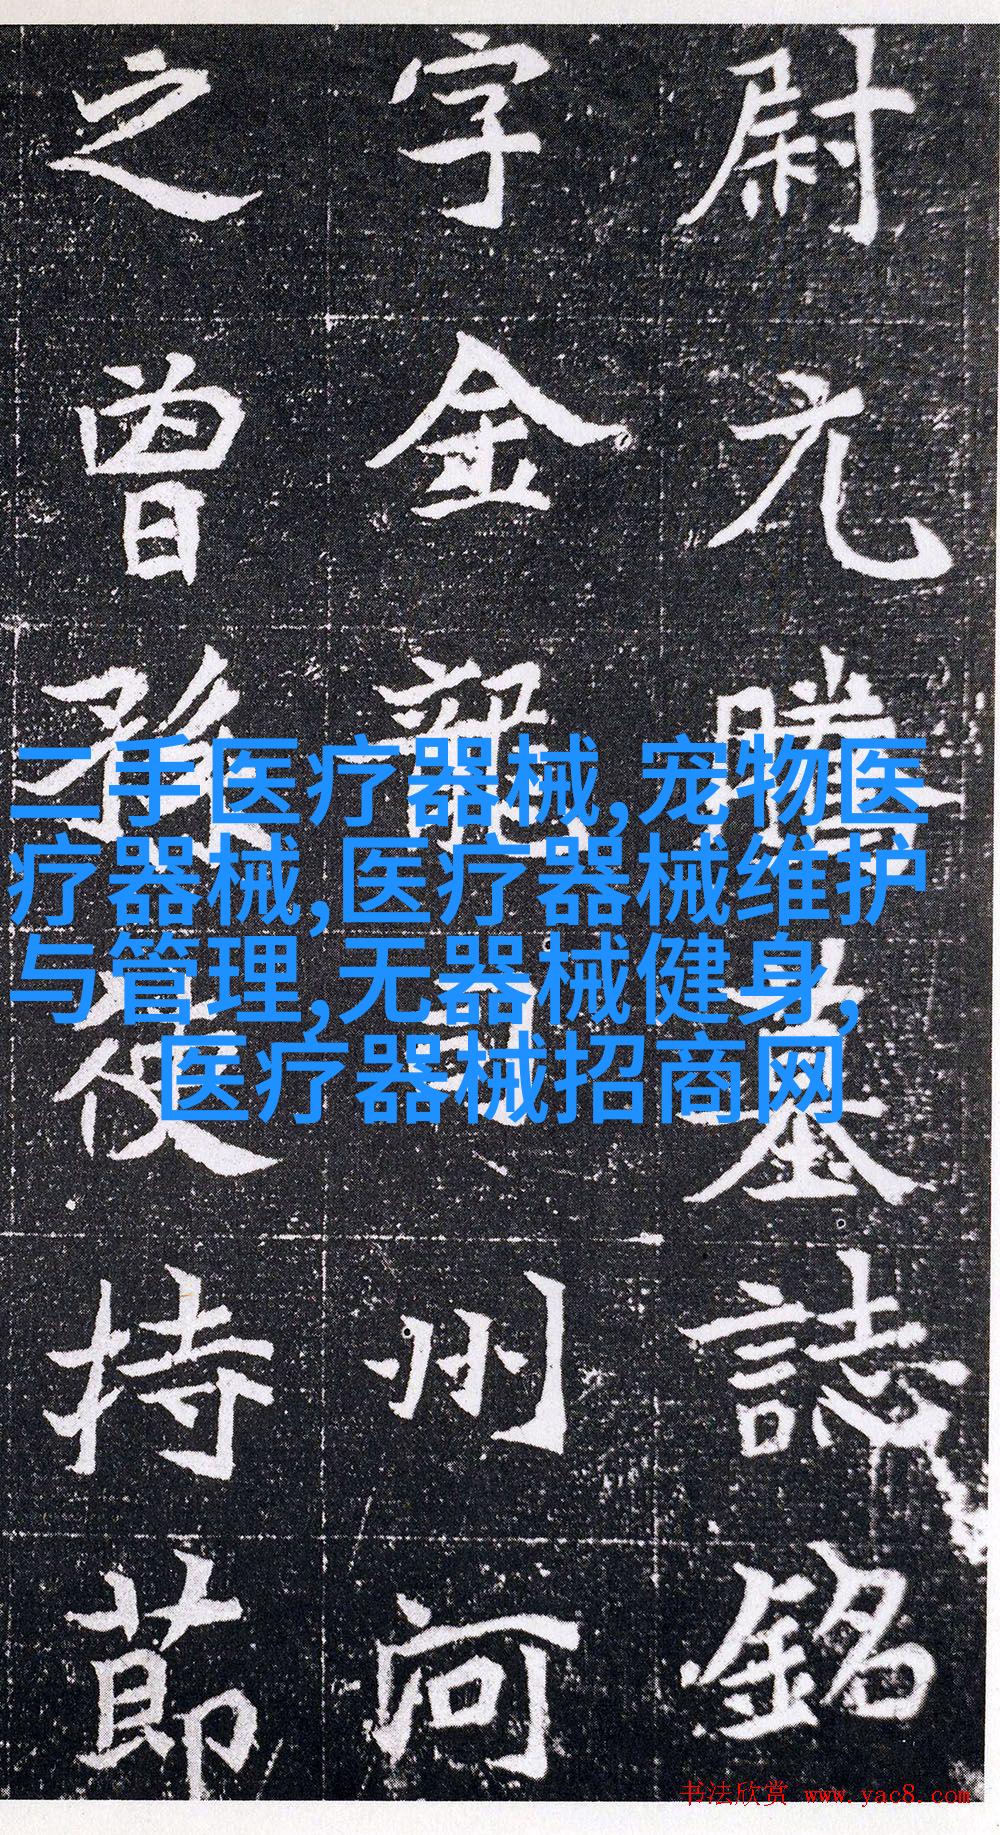 尉元騰墓誌銘
字金龍司州河
之曾孫使持節
二手医疗器械,宠物医
疗器械,医疗器械维护
与管理,无器械健身,
医疗器械招商网
书法欣赏 www.yac8.com